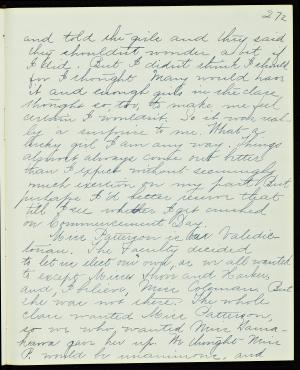 272
and told the girls and they said
they shouldn't wonder a bit, if
I did. But I didn't think I should
for I thought Mary would have
it and enough girls in the class
thought so, too, to make me feel
certain I wouldn't. So it was real-
ly a surprise to me. What a
lucky girl I am any way. Things
almost always come out better
than I expect without seemingly
much exertion on my part. But
perhaps I'd better reserve that
till I see whether I get crushed
on Commencement Day.
Miss Patterson is our Valedic-
torian. The Faculty decided
to let us elect our own, as we all wanted
to except Misses Snow and Hawkes,
and, I believe, Miss Coleman. But
she was not there. The whole
class wanted Miss Patterson,
so we who wanted Miss
gave her up. We thought Miss
P. would be unanimous, and